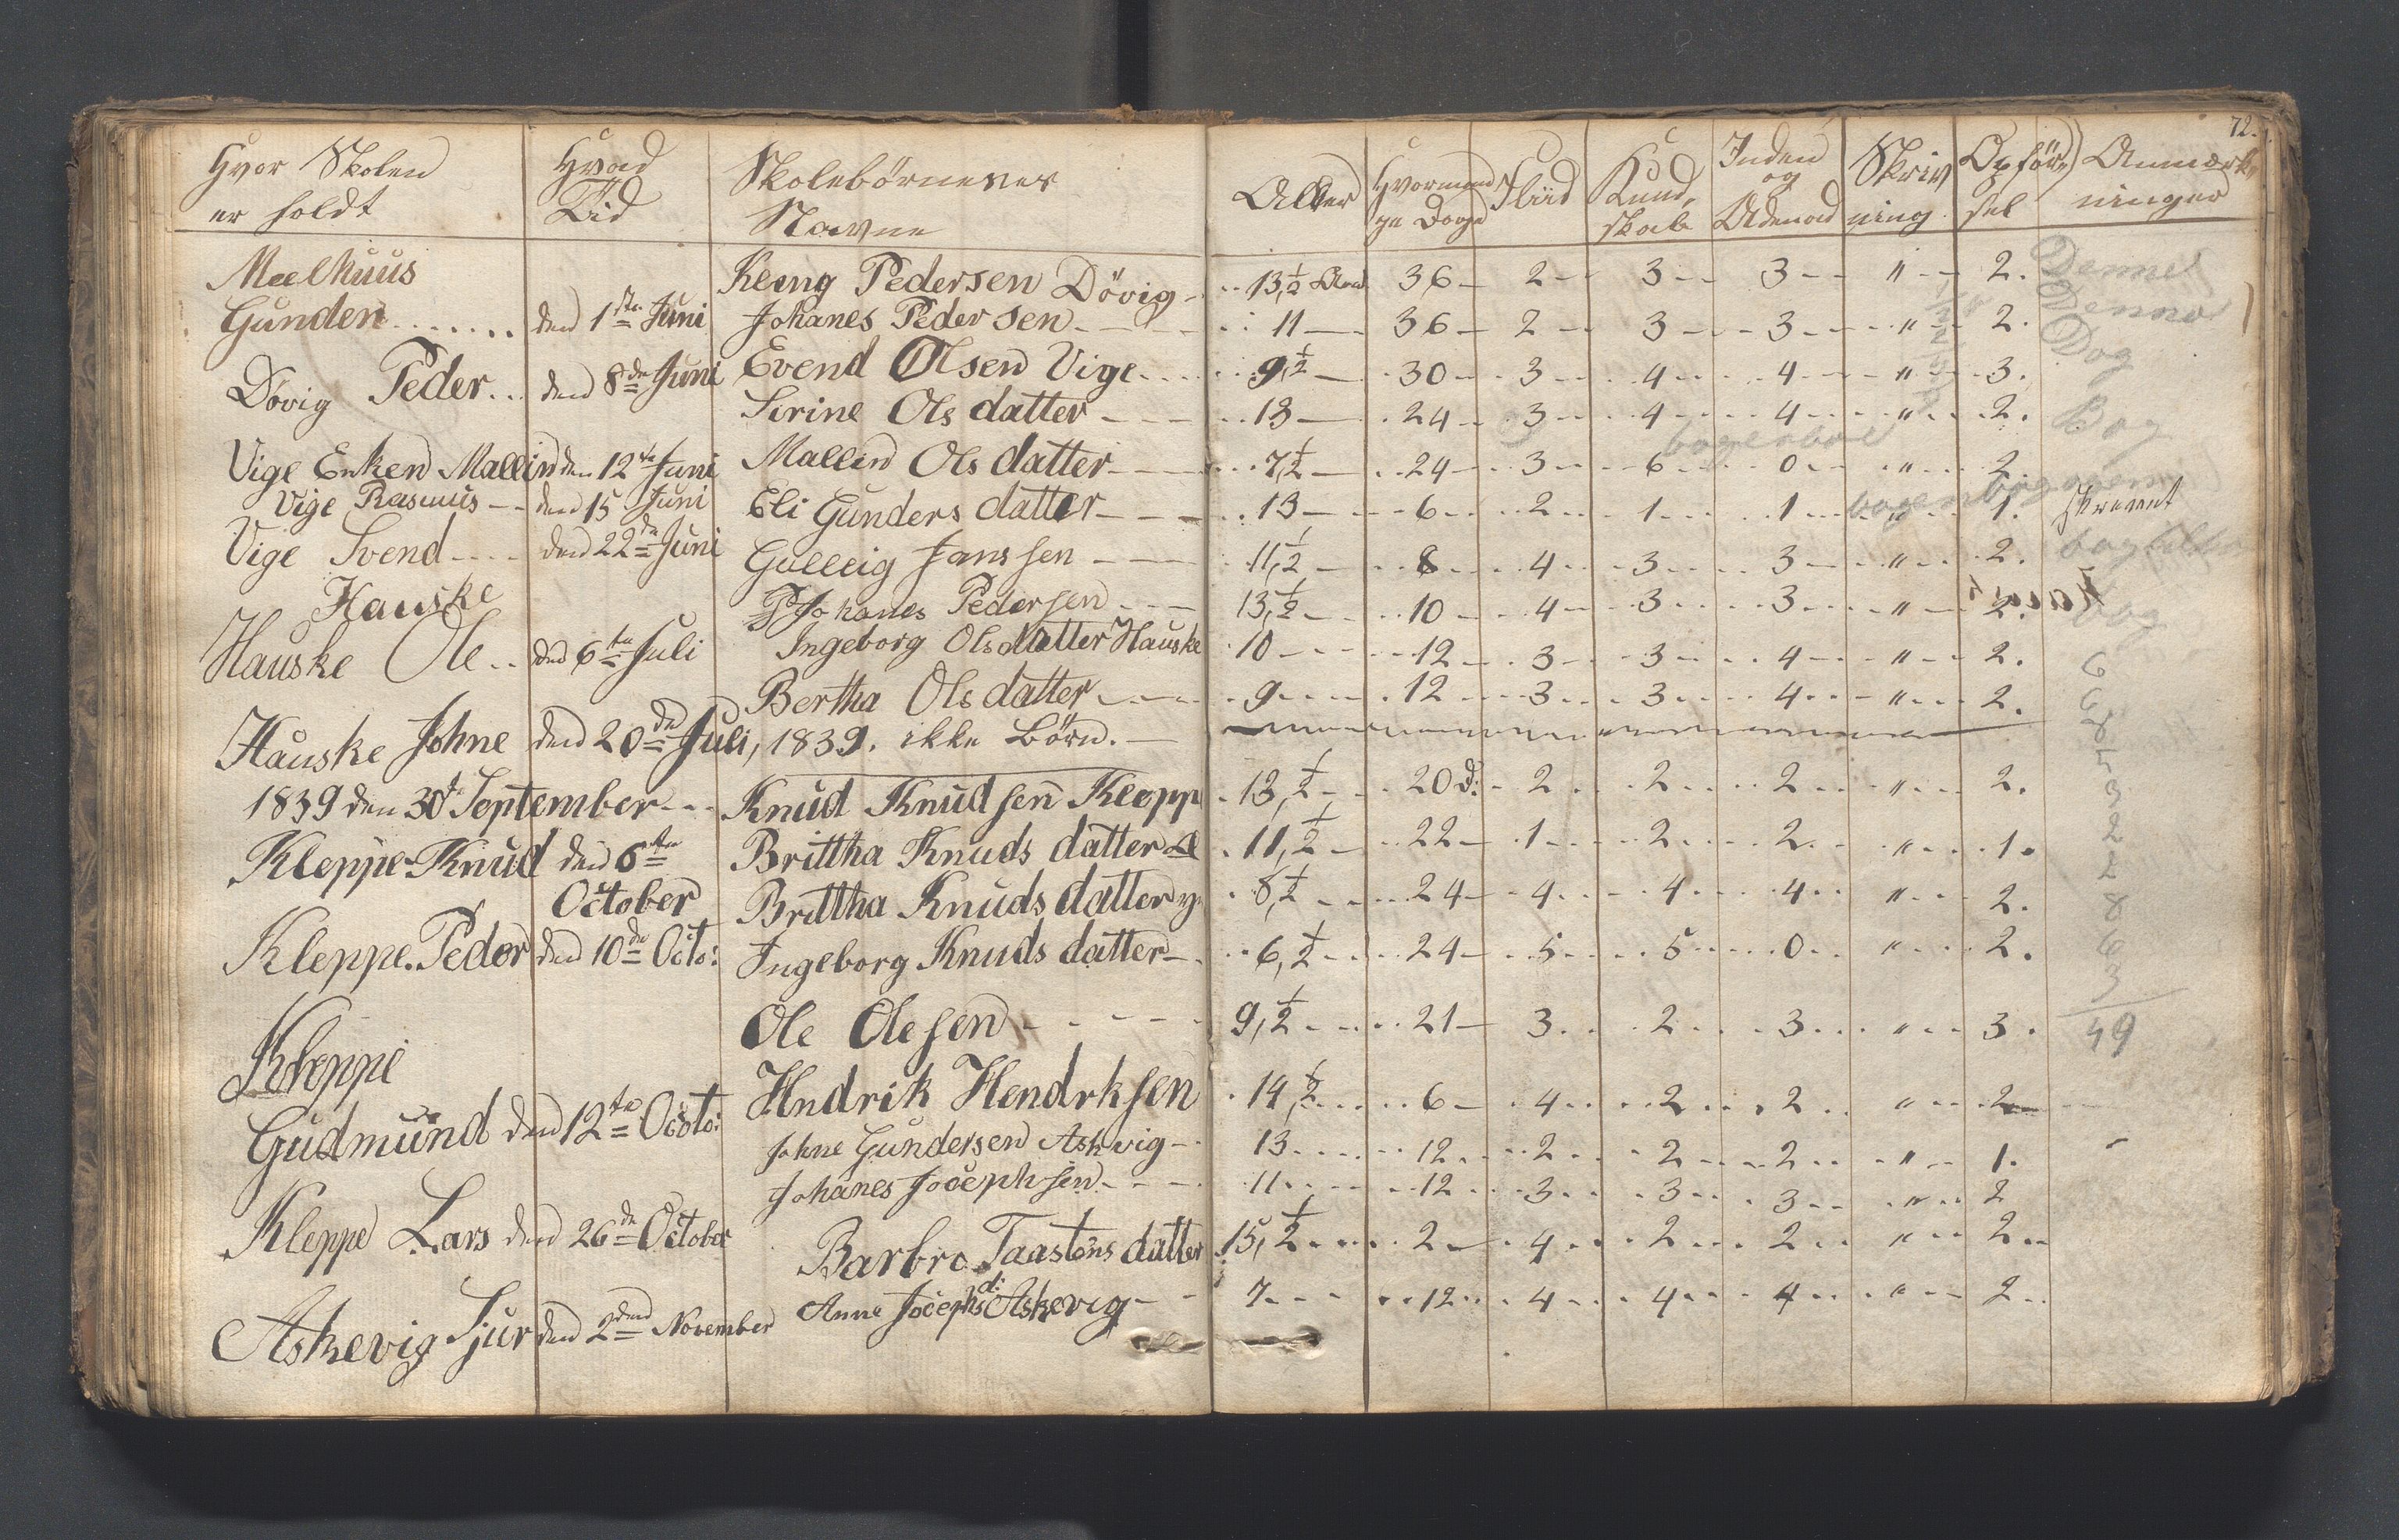 72.
Hvor Skolen er holdt | Hvad Tid | Skolebørnenes Navne | Alder | Hvormange Dage | Fliid | Kundskab | Inden og Udenad | Skrivning | Opførsel | Anmærkninger
Meelhuus | | Kleng Pedersen Dövig | 13,½ Aar | 36 | 2 | 3 | 3 | " | 2.
Gunder | den 1ste Juni | Johanes Pedersen | 11 | 36 | 2 | 3 | 3 | " | 2.
Dövig Peder | den 8de Juni | Evend Olsen Vige | 9,½ | 30 | 3 | 4 | 4 | " | 3.
Serine Ols datter | 13 | 24 | 3 | 4 | 4 | " | 2.
Vige Enken Mallin | den 12te Juni | Mallen Ols datter | 7,½ | 24 | 3 | 6 | 0 | " | 2.
Vige Rasmus | den 15 Juni | Eli Gunders datter | 13 | 6 | 2 | 1 | 1 | " | 1.
Vige Svend | den 22de Juni | Gulleig Jans sen | 11,½ | 8 | 4 | 3 | 3 | " | 2.
Hauske | | Johanes Pedersen | 13,½ | 10 | 4 | 3 | 3 | " | 2.
Hauske Ole | den 6te Juli | Ingeborg Olsdatter Hauske | 10 | 12 | 3 | 3 | 4 | " | 2.
Bertha Ols datter | 9 | 12 | 3 | 3 | 4 | " | 2.
Hauske Johne | den 20de Juli, 1839. ikke Börn.
1839 den 30te September | Knud Knudsen Klepp | 13,½ | 20 d: | 2 | 2 | 2 | " | 2.
Kleppe Knud | den 6te October | Brittha Knuds datter | 11,½ | 22 | 1 | 2 | 2 | " | 1.
Brittha Knuds datter | 8,½ | 24 | 4 | 4 | 4 | " | 2.
Kleppe Peder | den 10de Octo: | Ingeborg Knuds datter | 6,½ | 24 | 5 | 5 | 0 | " | 2.
Ole Olesen | 9,½ | 21 | 3 | 2 | 3 | " | 3.
Kleppe
Gudmund | den 12te Octo: | Hndrik Hendrksen | 14,½ | 6 | 4 | 2 | 2 | " | 2
Johne Gundersen Askvig | 13 | 12 | 2 | 2 | 2 | " | 1.
Johanes Jocephsen | 11 | 12 | 3 | 3 | 3 | " | 2
Kleppe Lars | den 26de October | Barbro Taastens datter | 15,½ | 2 | 4 | 2 | 2 | " | 2
Askevig Sjur | den 2den November | Anne Jocephs d: Askevig | 7 | 12 | 4 | 4 | 4 | " | 2
Denne
Denne
Dog
Bog
Skrevet
bog
6
6
8
5
3
2
2
8
6
3
49